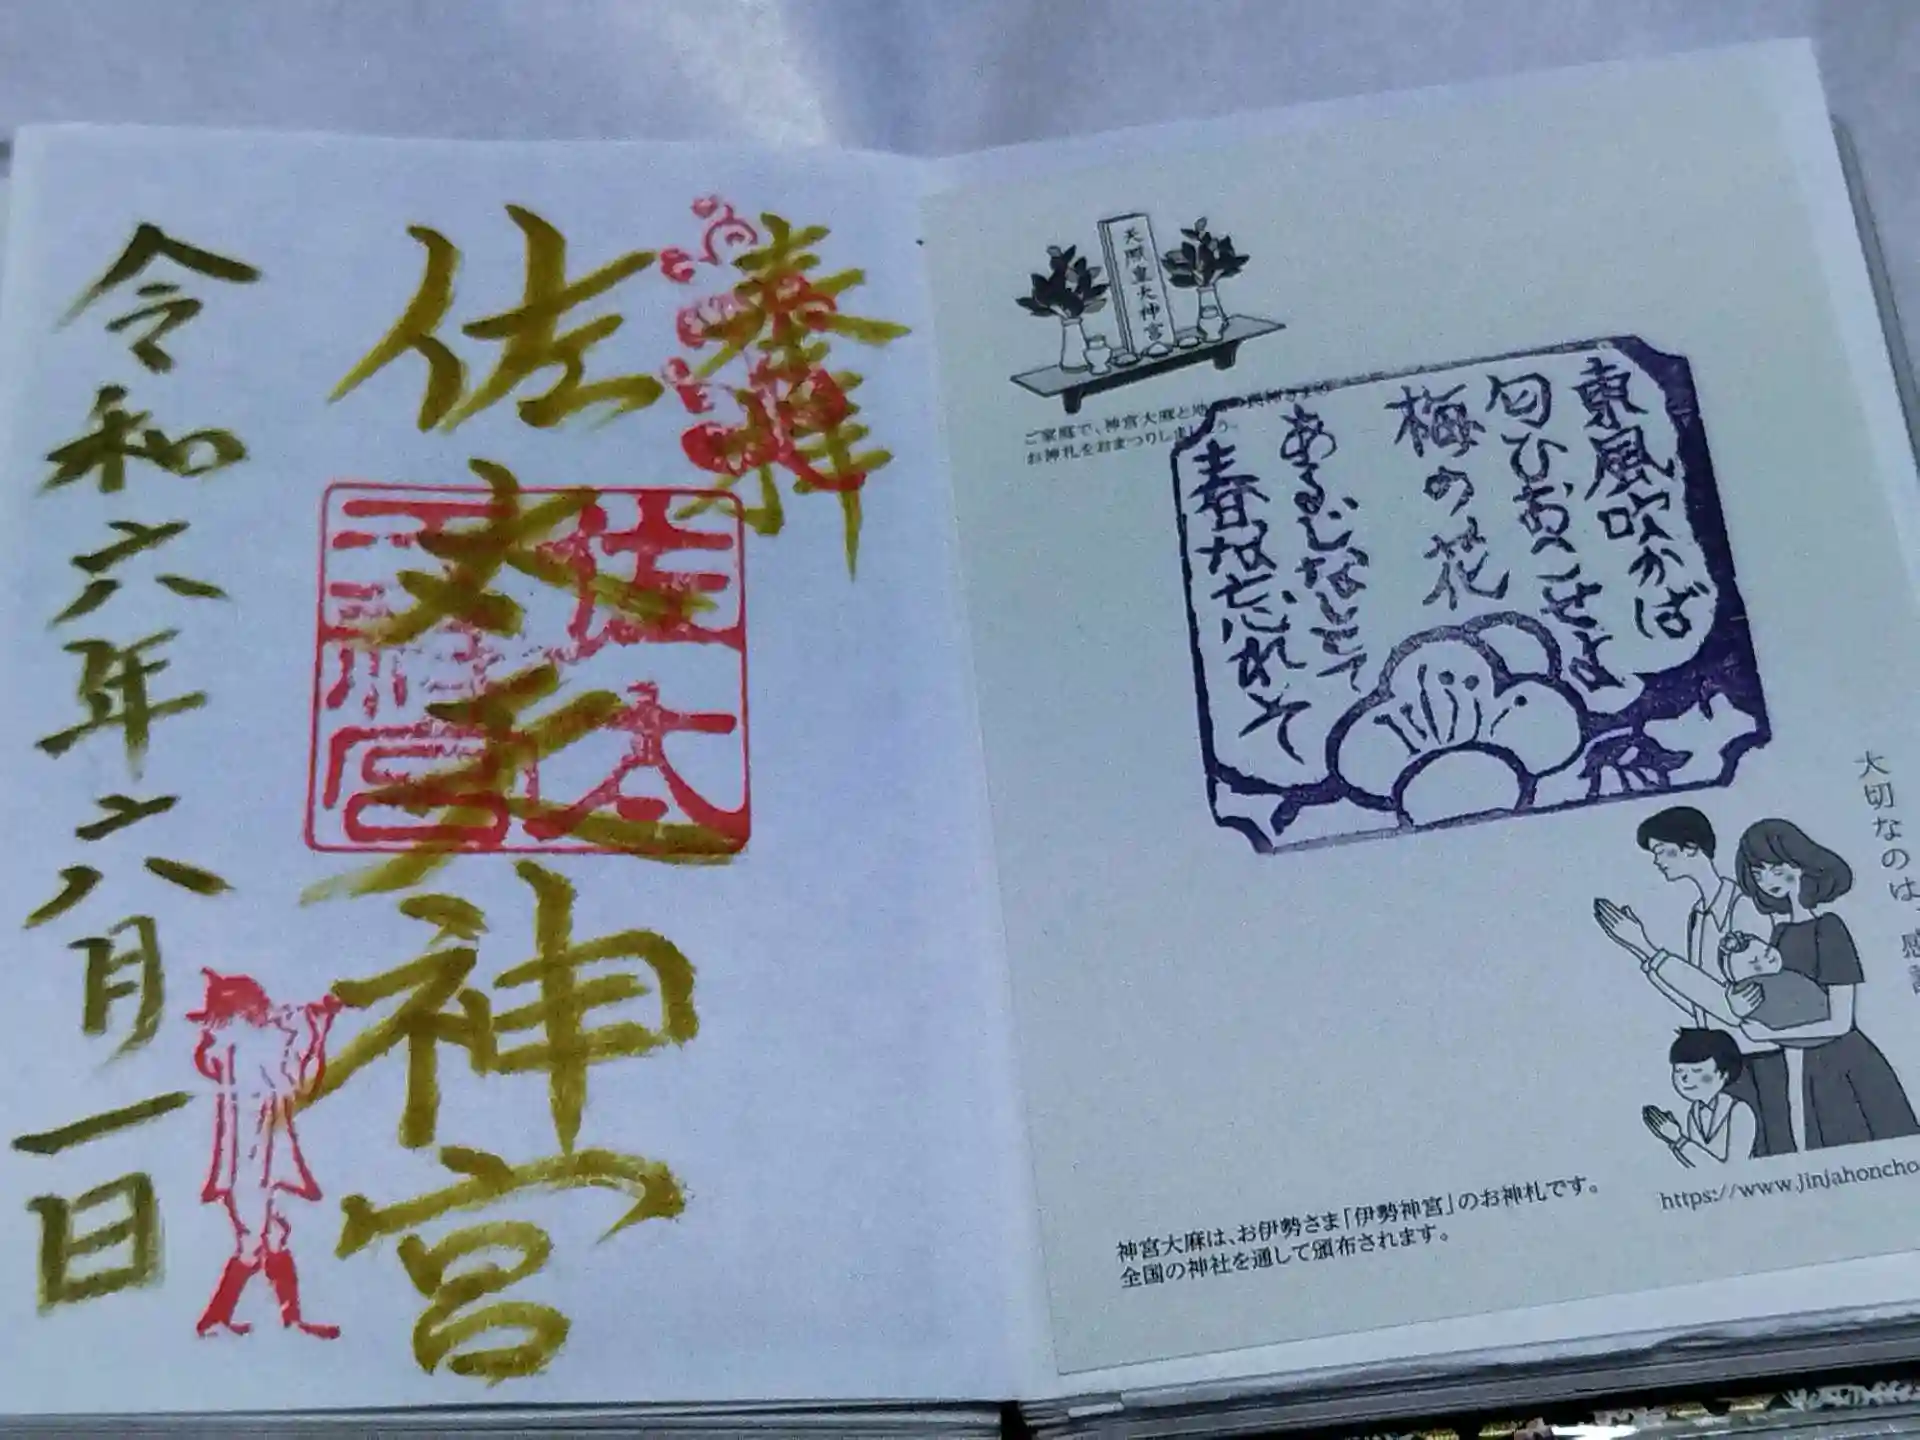 奉拝
佐太天神宮
佐太
天満宮
令和六年六月一日
天照皇大神宮
ご家庭で、神宮大麻と地
お神札をおまつりしましょう。
東風吹かば
匂ひおこせよ
梅の花
あるじなしとて
春な忘れそ
大切なのは、
感
https://www.jinjahoncho
神宮大麻は、お伊勢さま「伊勢神宮」のお神札です。
全国の神社を通して頒布されます。